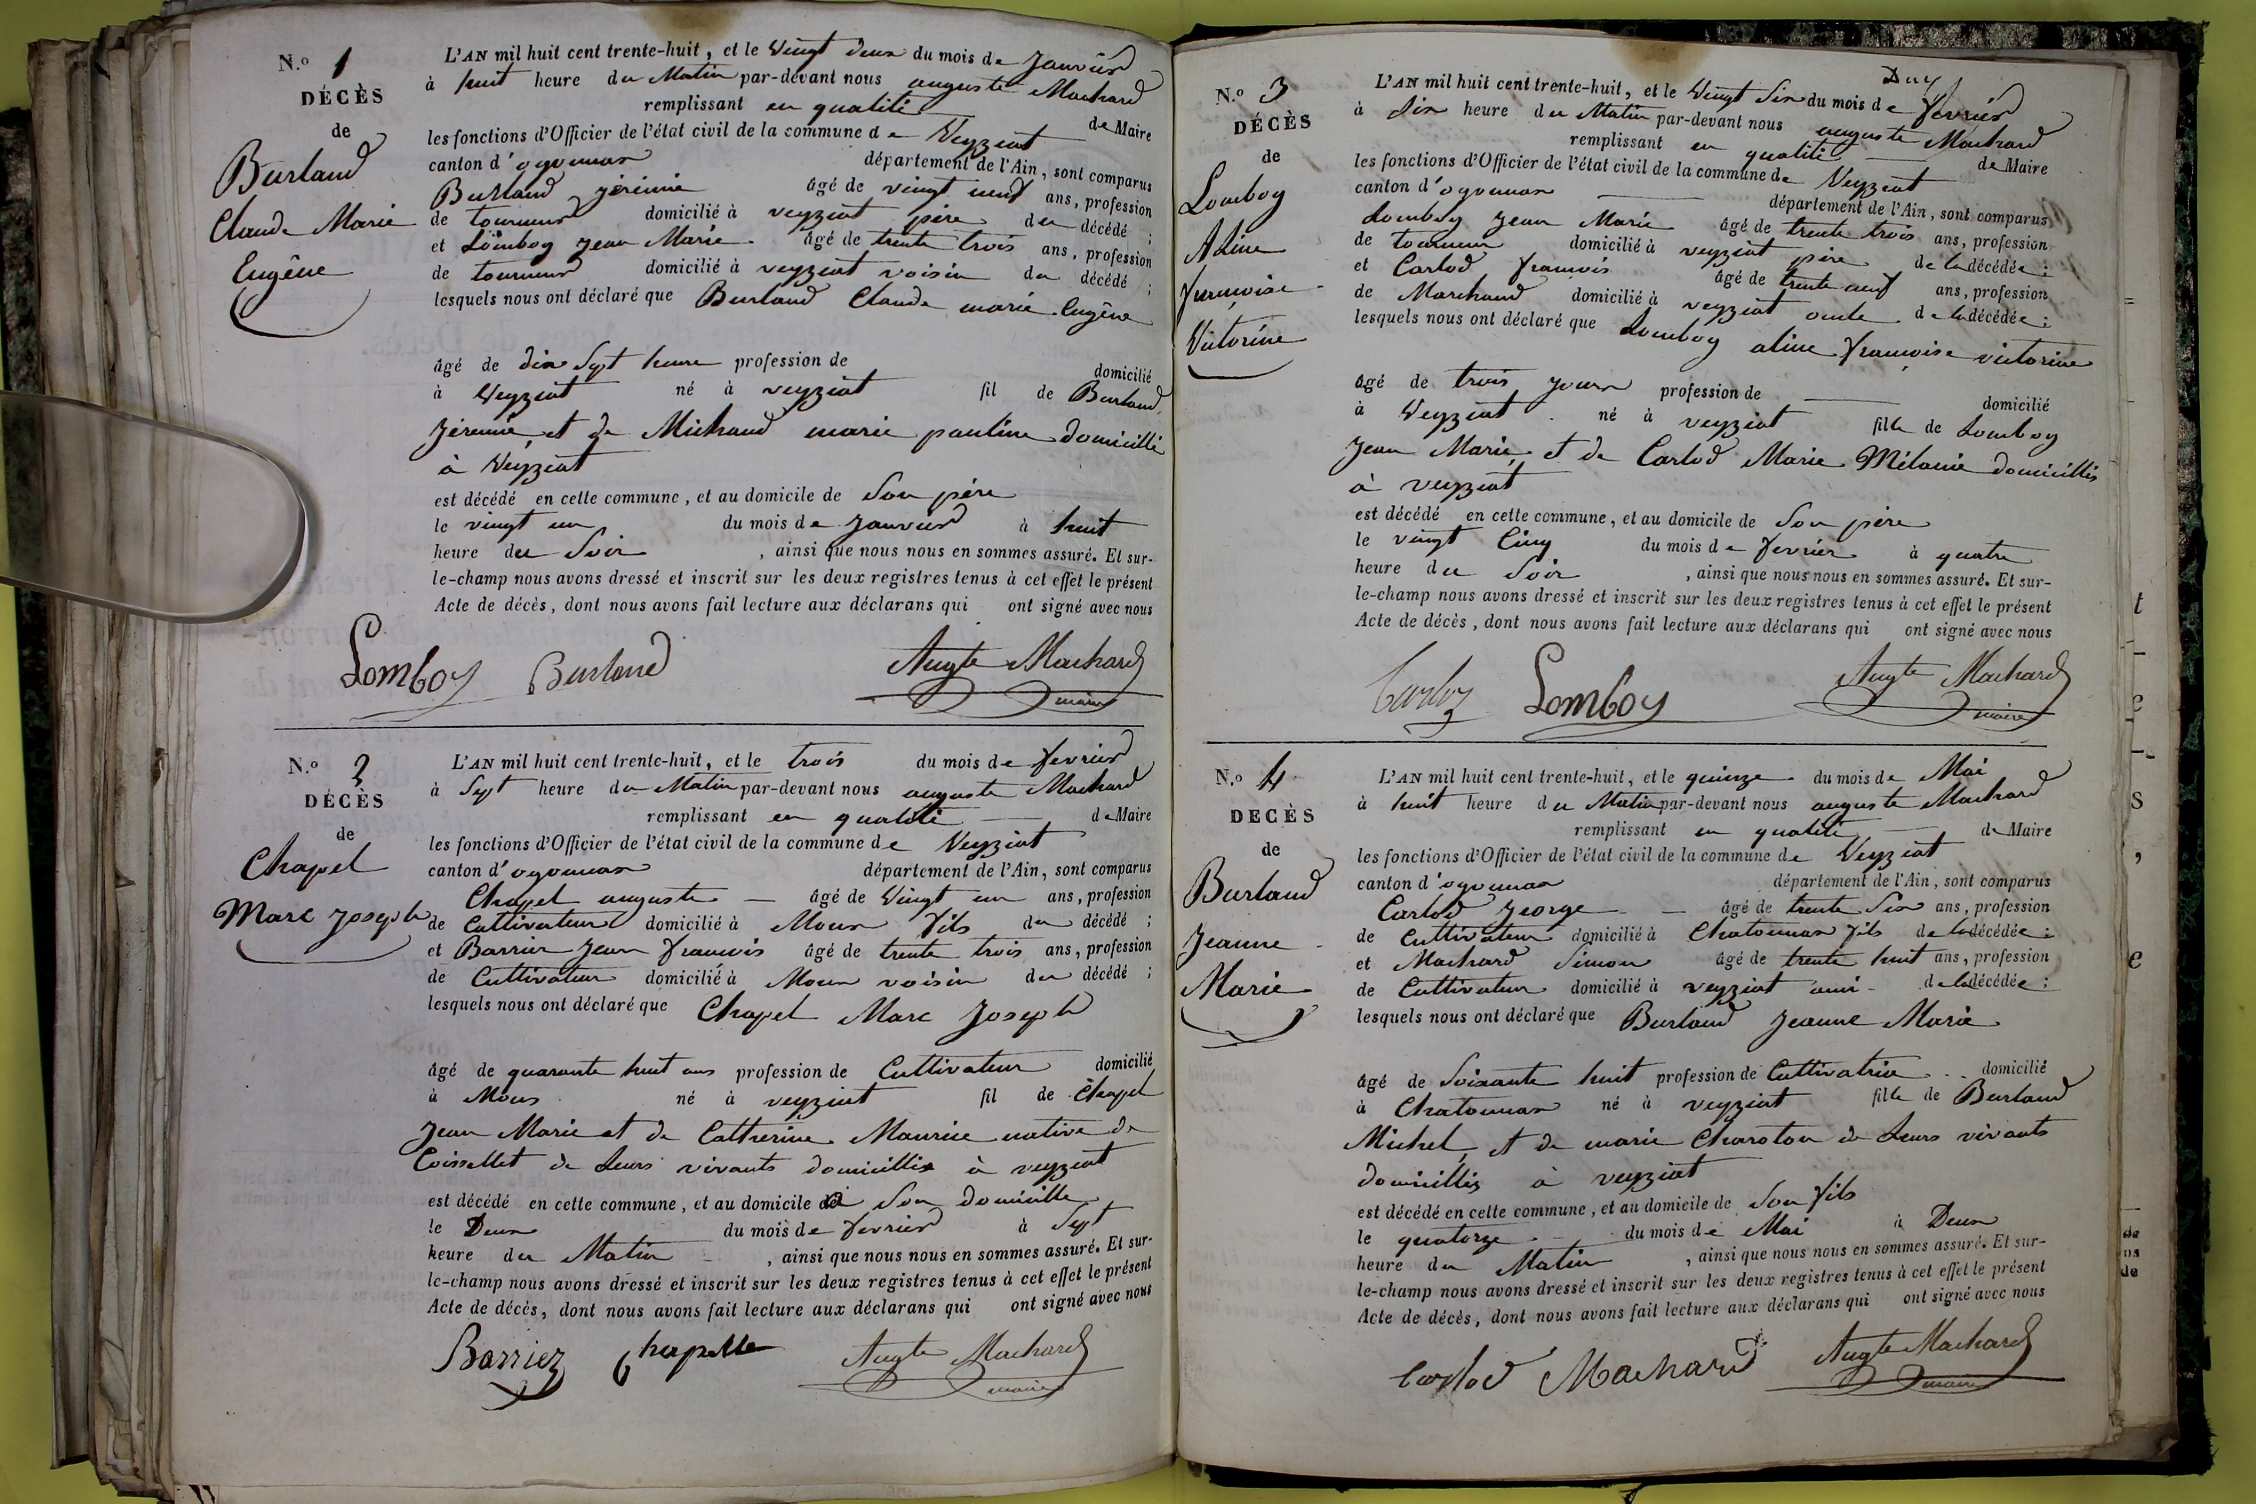 N.º 1
DÉCÈS
de
Burland
Claude Marie
Eugêne
L'AN mil huit cent trente-huit, et le Vingt deux du mois de Janvier
à huit heure du Matin par-devant nous auguste Machard
remplissant en qualité de Maire
les fonctions d'Officier de l'état civil de la commune de Veyziat
canton d'oyonnax département de l'Ain, sont comparus
Burland jérémie âgé de vingt neuf ans, profession
de tourneur domicilié à veyziat père du décédé ;
et Lomboy Jean Marie âgé de trente trois ans, profession
de tourneur domicilié à veyziat voisin du décédé ;
lesquels nous ont déclaré que Burland Claude marie Eugêne
âgé de dix Sept heure profession de domicilié
à Veyziat né à veyziat fil de Burland
Jéremie et de Michaud marie pauline domicillié
à Veyziat
est décédé en cette commune, et au domicile de Son père
le vingt un du mois de Janvier à huit
heure du Soir , ainsi que nous nous en sommes assuré. Et sur-
le-champ nous avons dressé et inscrit sur les deux registres tenus à cet effet le présent
Acte de décès, dont nous avons fait lecture aux déclarans qui ont signé avec nous
Lomboy Burland Augte Machard
maire
N.º 2
DÉCÈS
de
Chapel
Marc Joseph
L'AN mil huit cent trente-huit, et le trois du mois de fevrier
à Sept heure du Matin par-devant nous auguste Machard
remplissant en qualité de Maire
les fonctions d'Officier de l'état civil de la commune de Veyziat
canton d'oyonnax département de l'Ain, sont comparus
Chapel auguste âgé de Vingt un ans, profession
de Cultivateur domicilié à Mons fils du décédé ;
et Barrier Jean francois âgé de trente trois ans, profession
de Cultivateur domicilié à Mons voisin du décédé ;
lesquels nous ont déclaré que Chapel Marc Joseph
âgé de quarante huit ans profession de Cultivateur domicilié
à Mons né à veyziat fil de Chapel
Jean Marie et de Catherine Maurice native de
Coissellet de Leurs vivants domicilliés à veyziat
est décédé en cette commune, et au domicile Son domicille
le Deux du mois de fevrier à Sept
heure du Matin , ainsi que nous nous en sommes assuré. Et sur-
le-champ nous avons dressé et inscrit sur les deux registres tenus à cet effet le présent
Acte de décès, dont nous avons fait lecture aux déclarans qui ont signé avec nous
Barriez Chapelle Augte Machard
maire
N.º 3
DÉCÈS
de
Lomboy
Aline
francoise
Victorine
Duy
L'AN mil huit cent trente-huit, et le Vingt Six du mois de fevrier
à dix heure du Matin par-devant nous auguste Machard
remplissant en qualité de Maire
les fonctions d'Officier de l'état civil de la commune de Veyziat
canton d'oyonnax département de l'Ain, sont comparus
Lomboy Jean Marie âgé de trente trois ans, profession
de tourneur domicilié à veyziat père de la décédée ;
et Carlod francois âgé de trente neuf ans, profession
de Marchand domicilié à veyziat oncle de la décédée ;
lesquels nous ont déclaré que Lomboy aline françoise victorine
âgé de trois jours profession de domicilié
à Veyziat né à veyziat fille de Lomboy
Jean Marie et de Carlod Marie Mélanie domicilliés
à veyziat
est décédé en cette commune, et au domicile de Son père
le vingt Cinq du mois de fevrier à quatre
heure du Soir , ainsi que nous nous en sommes assuré. Et sur-
le-champ nous avons dressé et inscrit sur les deux registres tenus à cet effet le présent
Acte de décès, dont nous avons fait lecture aux déclarans qui ont signé avec nous
Lomboy Augte Machard
maire
N.º 4
DECÈS
de
Burland
Jeanne
Marie
L'AN mil huit cent trente-huit, et le quinze du mois de Mai
à huit heure du Matin par-devant nous auguste Machard
remplissant en qualité de Maire
les fonctions d'Officier de l'état civil de la commune de Veyziat
canton d'oyonnax département de l'Ain, sont comparus
Carlod George âgé de trente Six ans, profession
de Cultivateur domicilié à Chatonnax fils de la décédée ;
et Machard Simon âgé de trente huit ans, profession
de Cultivateur domicilié à veyziat ami de la décédée ;
lesquels nous ont déclaré que Burland Jeanne Marie
âgé de Soixante huit profession de Cultivatrice domicilié
à Chatonnax né à veyziat fille de Burland
Michel et de marie Charoton de Leurs vivants
domicilliés à veyziat
est décédé en cette commune, et au domicile de Son fils
le quatorze du mois de Mai à Deux
heure du Matin , ainsi que nous nous en sommes assuré. Et sur-
le-champ nous avons dressé et inscrit sur les deux registres tenus à cet effet le présent
Acte de décès, dont nous avons fait lecture aux déclarans qui ont signé avec nous
Carlod Machard Augte Machard
maire